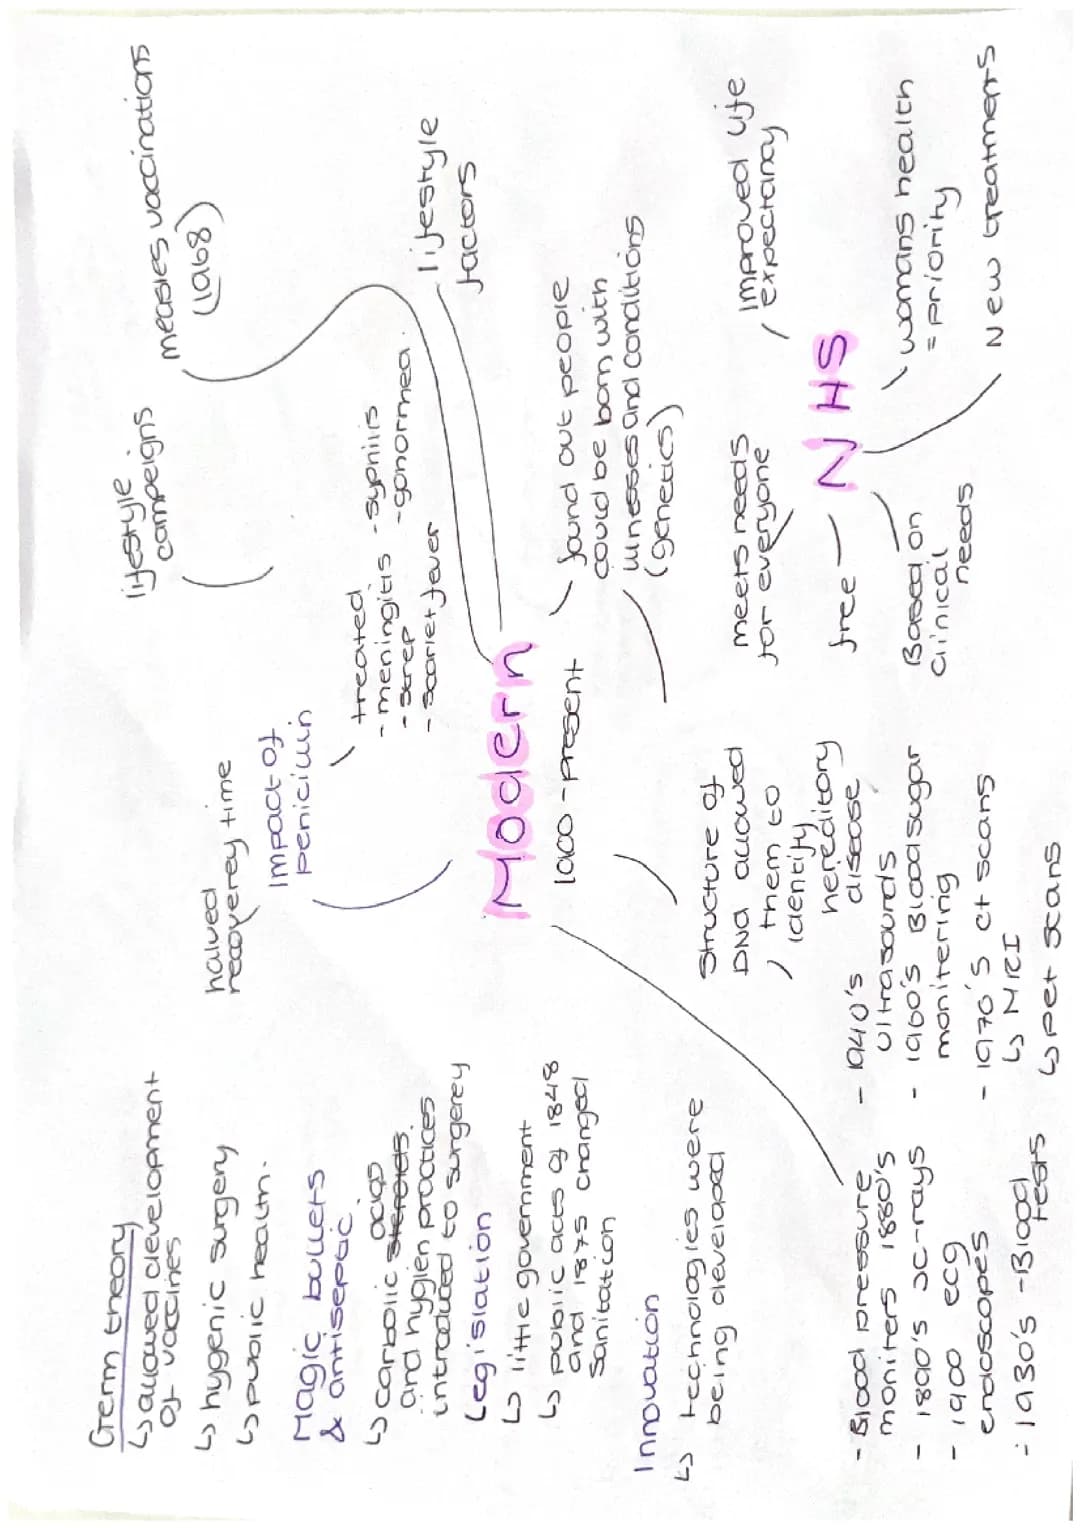 Germ theory
↳ allowed development
of vaccines
↳ hygenic surgery
↳ public health.
Magic bullets
& antiseptic
↳ carbolic acias
and hygien practices
introduced to surgerey
Legislation
↳ little government
↳ public acts of 1848
and 1875 changed
sanitation
Innovation
↳ technologies were
being developed
- Blood pressure
moniters 1880's
- 1890's x-rays
- 1900 ecg
endoscopes
- 1930's - Blood
tests
- 1940's
ultrasounds
- 1960's Blood sugar
monitering
- 1970's ct scans
↳ MRI
↳ pet scans
halved
recoverey time
Impact of
penicillin
treated
- meningitis - syphilis
- strep - gonorrhea
- scarlet fever
lifestyle
campeigns
measles vaccinations
(1968)
lifestyle
factors
Modern
1900 - present
found out people
could be born with
illnesses and conditions
(genetics)
Structure of
DNA allowed
them to
identify
hereditory
disease
NHS
meets needs
for everyone
free
Based on
clinical
needs
improved life
expectancy
womans health
= priority
New treatments